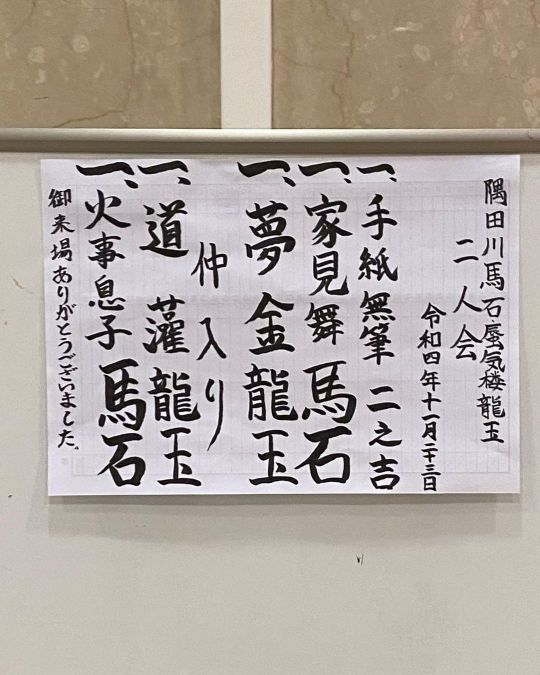 隅田川馬石蜃気楼龍玉
二人会
令和四年十一月二十三日
一、手紙無筆 二之吉
一、家見舞 馬石
一、夢金 龍玉
仲入り
一、道灌 龍玉
一、火事息子 馬石
御来場ありがとうございました。